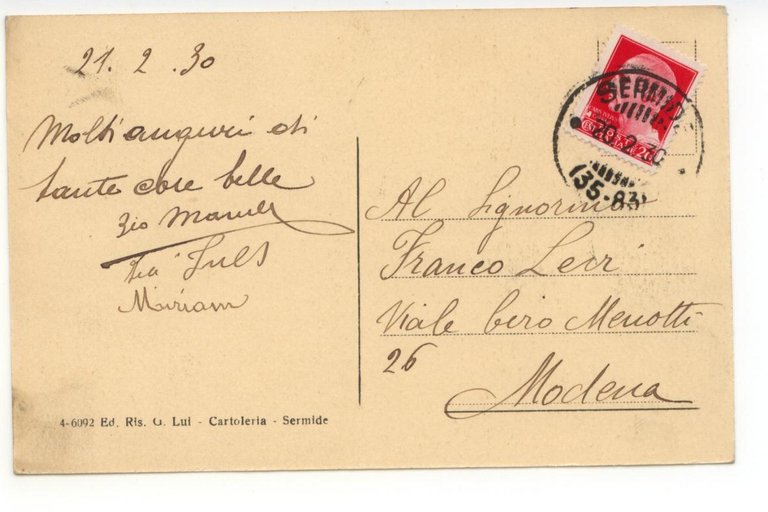 21.2.30
Molti auguri di
tante cose belle
Zio
Zia
Miriam
4-6092 Ed. Ris. G. Lui - Cartoleria - Sermide
SERMIDE
2.30
(35-83)
Al Signorino
Franco Levi
Viale Ciro Menotti
26
Modena